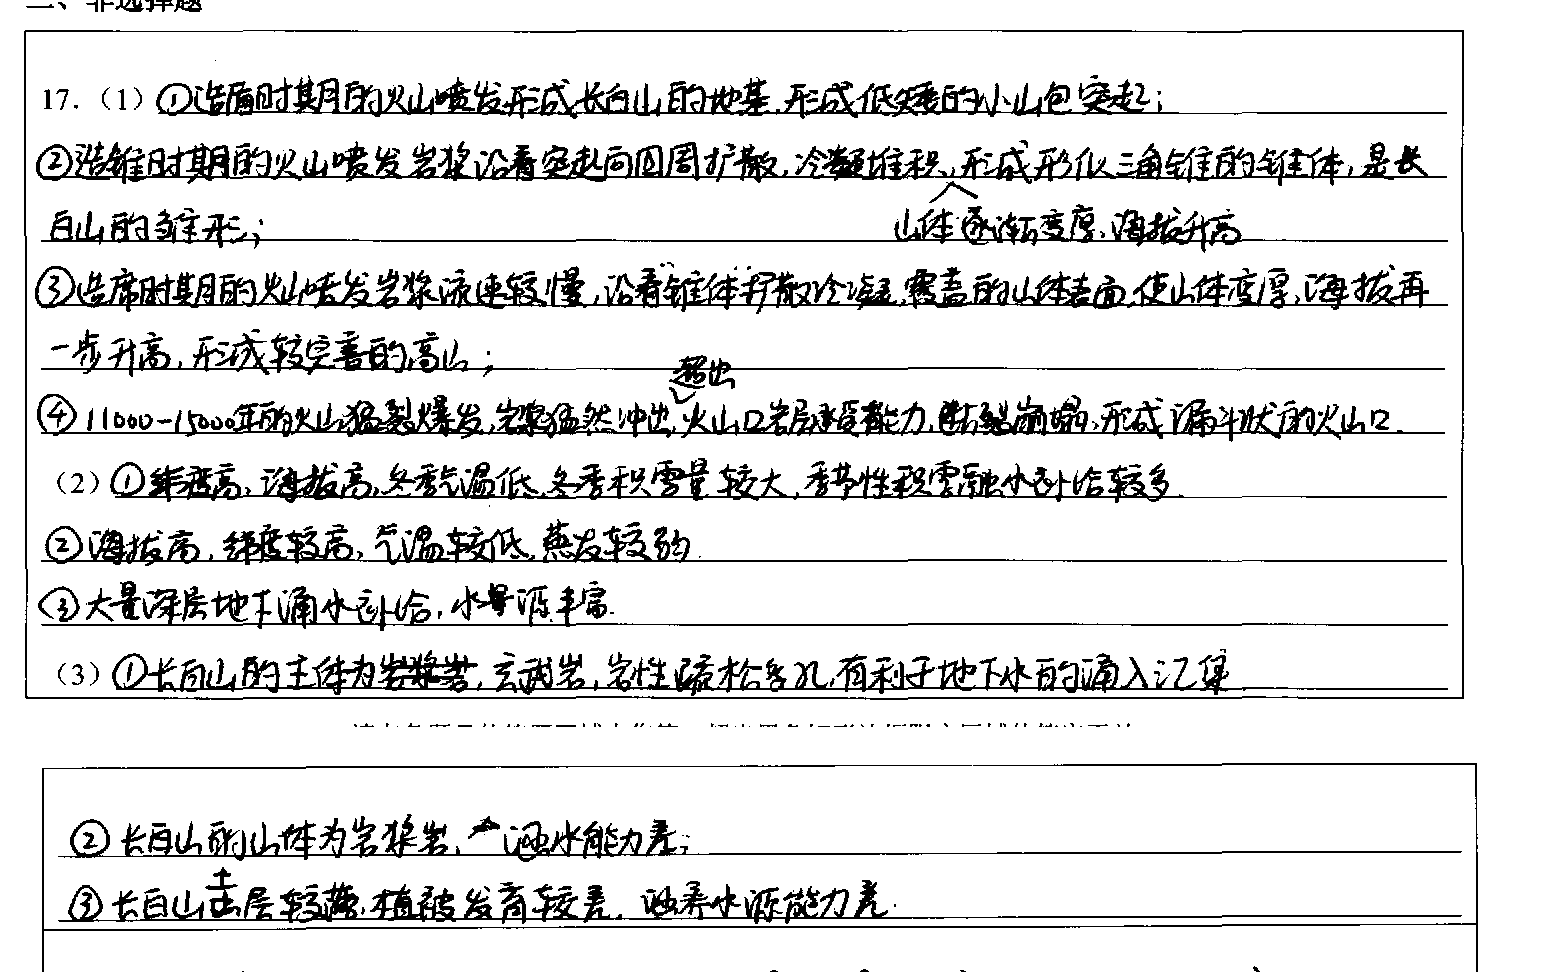 二、非选择题
17.（1）①造盾时期的火山喷发形成长白山的地基，形成低矮的小山包突起；
②造锥时期的火山喷发岩浆沿着突起向四周扩散，冷凝堆积，形成形似三角锥的锥体，是长
山体逐渐变厚，海拔升高
白山的雏形；
③造席时期的火山喷发岩浆流速较慢，沿着锥体扩散冷凝，覆盖的山体表面，使山体变厚，海拔再
一步升高，形成较完善的高山；
超出
④11000-15000年的火山猛烈爆发，岩浆猛然冲出，火山口岩层承受能力，崩塌，形成漏斗状的火山口.
（2）①纬度高，海拔高，冬季气温低，冬季积雪量较大，季节性积雪融水补给较多.
②海拔高，纬度较高，气温较低，蒸发较弱.
③大量深层地下涌水补给，水量源丰富.
（3）①长白山的主体为岩浆岩，玄武岩，岩性疏松多孔，有利于地下水的涌入汇集
②长白山的山体为岩浆岩，涵水能力差；
土
③长白山层较薄，植被发育较差，涵养水源能力差.